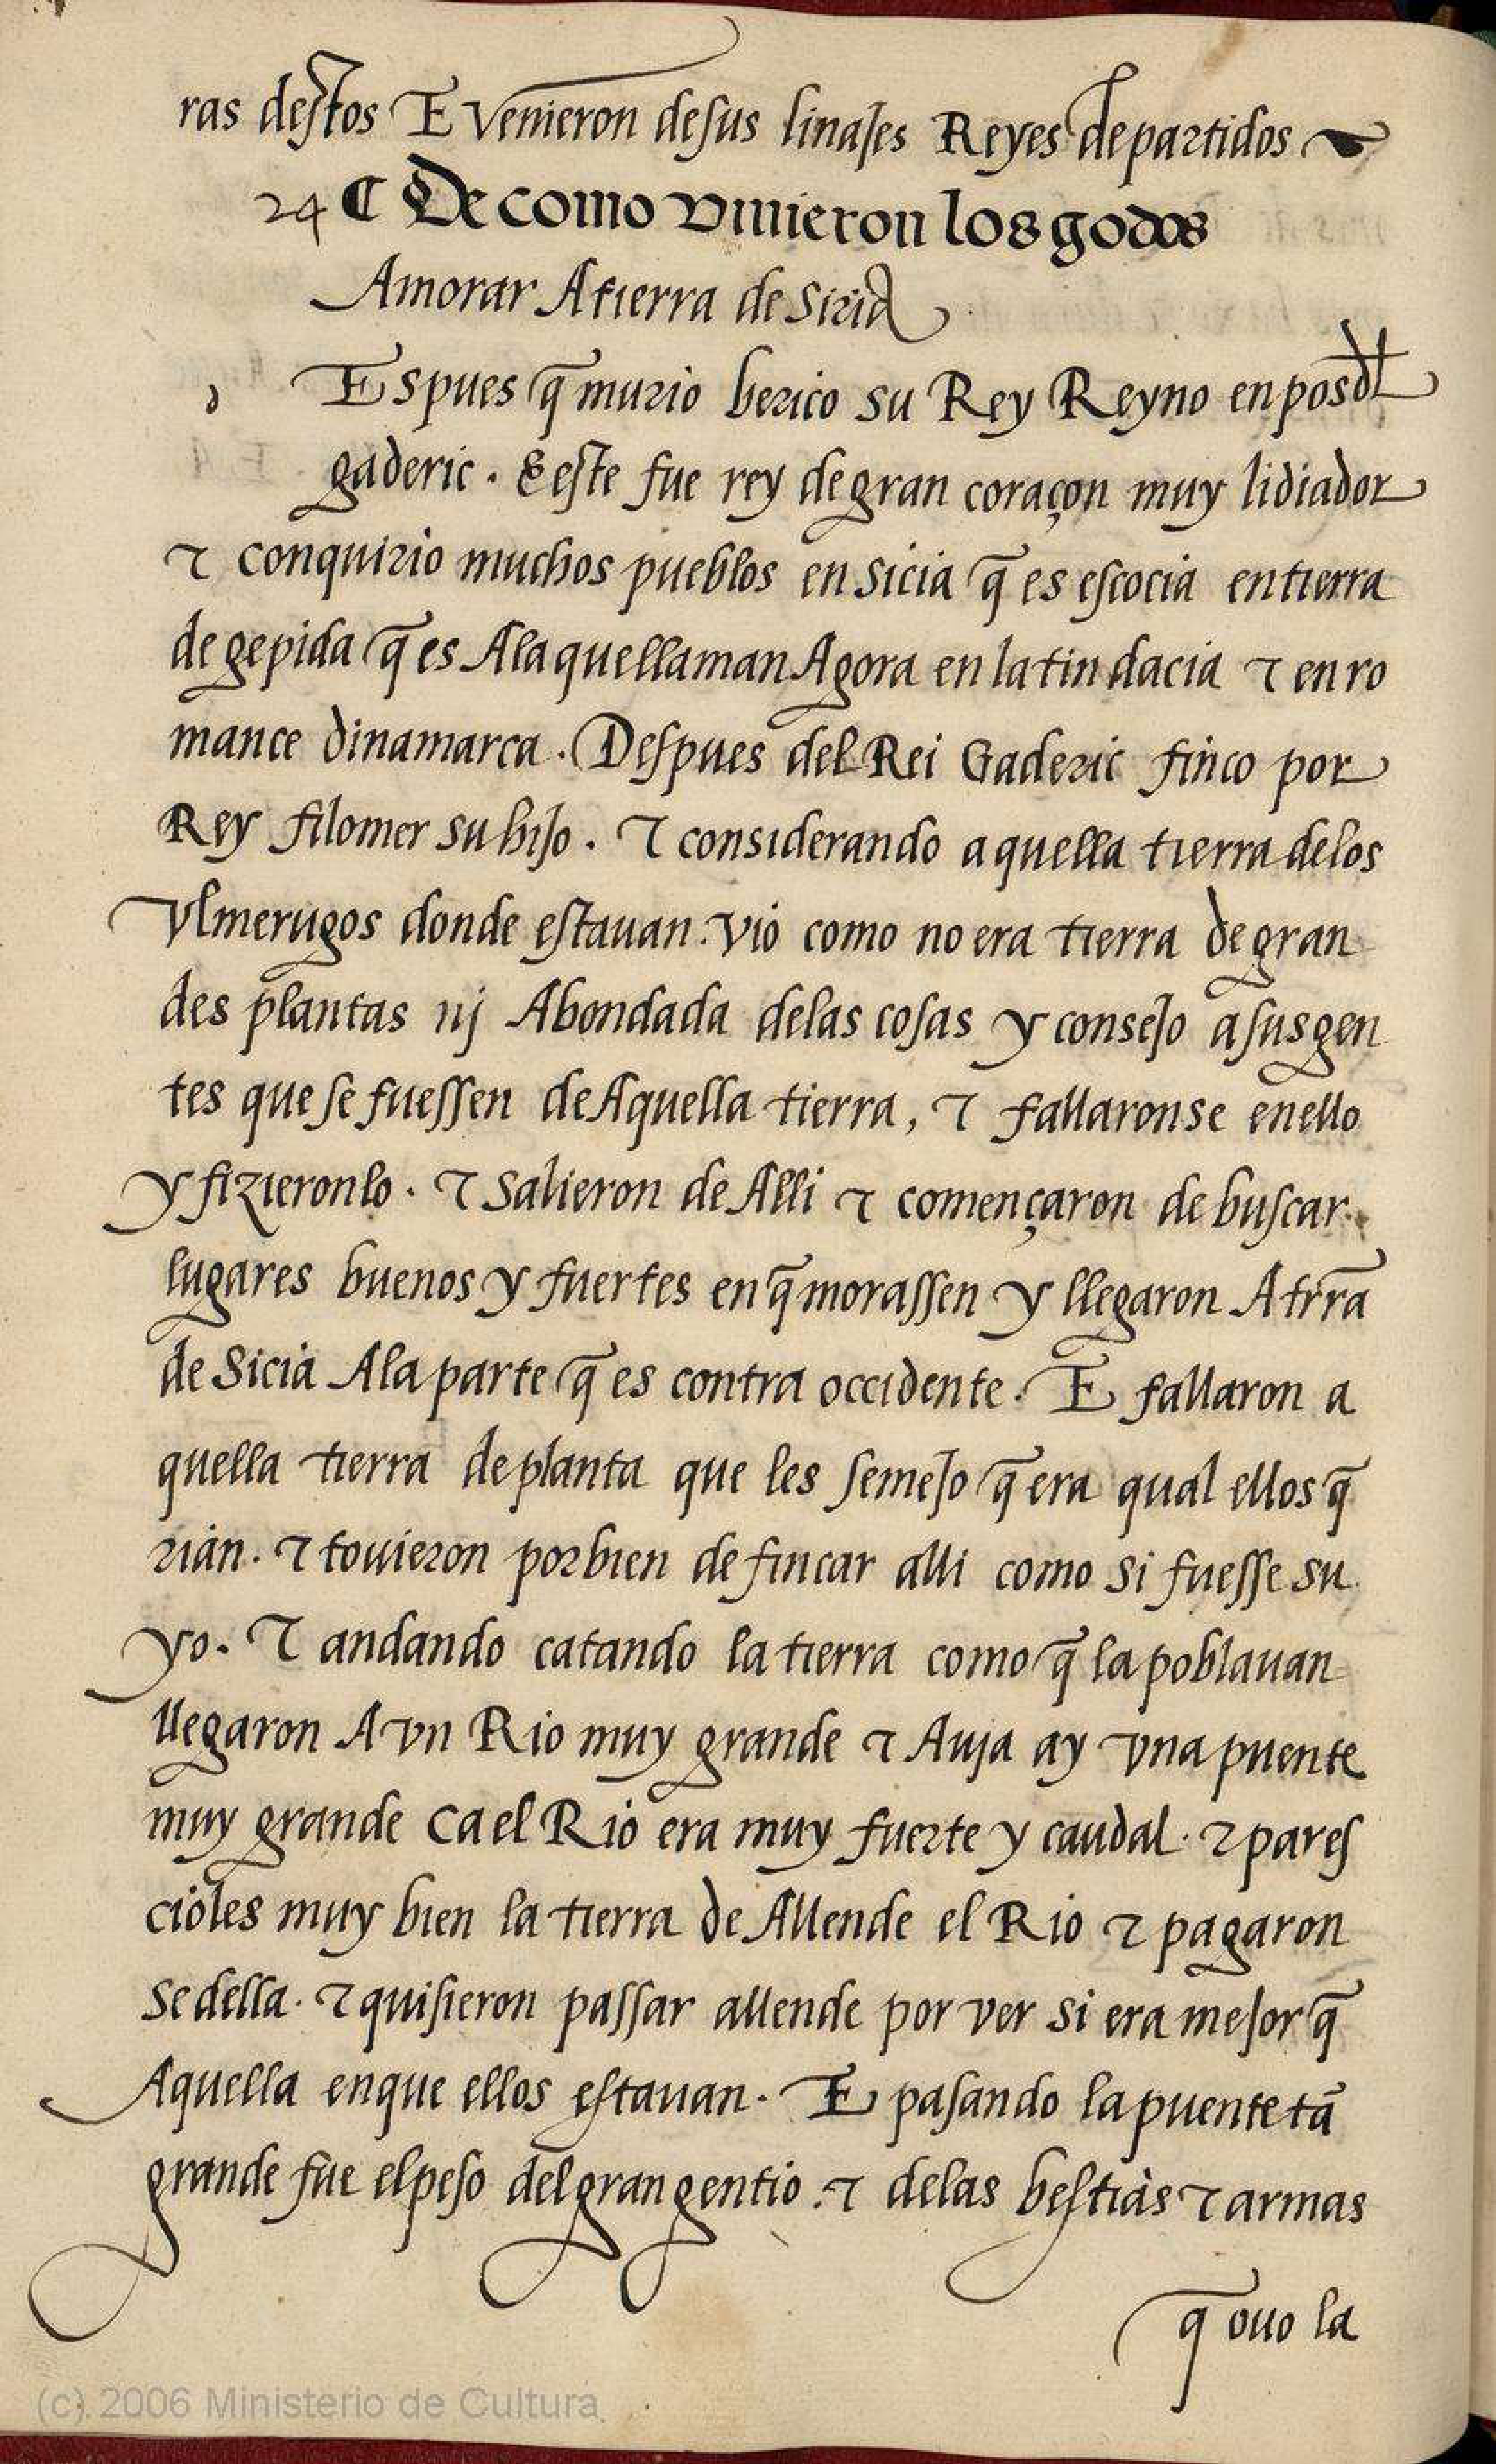 ras destos E Venieron desus linajes Reyes departidos
24 ¶ De como vinieron los godos
Amorar Atierra de Siria
d Espues q̄ murio berico su Rey Reyno enpos dl
gaderic. E este fue rey degran coraçon muy lidiador
τ conquirio muchos pueblos en sicia q̄ es escocia entierra
de gepida q̄ es Ala quellaman Agora en latin dacia τ en ro
mance dinamarca. Despues del Rei Gaderic finco por
Rey filomer su hijo. τ considerando aquella tierra delos
vlmerugos donde estauan. vio como no era tierra de gran
des plantas nj Abondada delas cosas y consejo asus gen
tes que se fuessen de Aquella tierra, τ fallaronse enello
y fizieronlo. τ salieron de Alli τ començaron de buscar
lugares buenos y fuertes en q̄ morassen y llegaron A trr̄a
de Sicia Ala parte q̄ es contra occidente. E fallaron a
quella tierra de planta que les semejo q̄ era qual ellos q̄
rian. τ touieron por bien de fincar alli como si fuesse su
yo. τ andando catando la tierra como q̄ la poblauan
llegaron A vn Rio muy grande τ Auja ay vna puente
muy grande Ca el Rio era muy fuerte y caudal. τ pares
cioles muy bien la tierra de Allende el Rio τ pagaron
se della. τ quisieron passar allende por ver si era mejor q̄
Aquella enque ellos estauan. E pasando la puente tā
grande fue el peso del gran gentio. τ delas bestias τ armas
q̄ ouo la
(c) 2006 Ministerio de Cultura